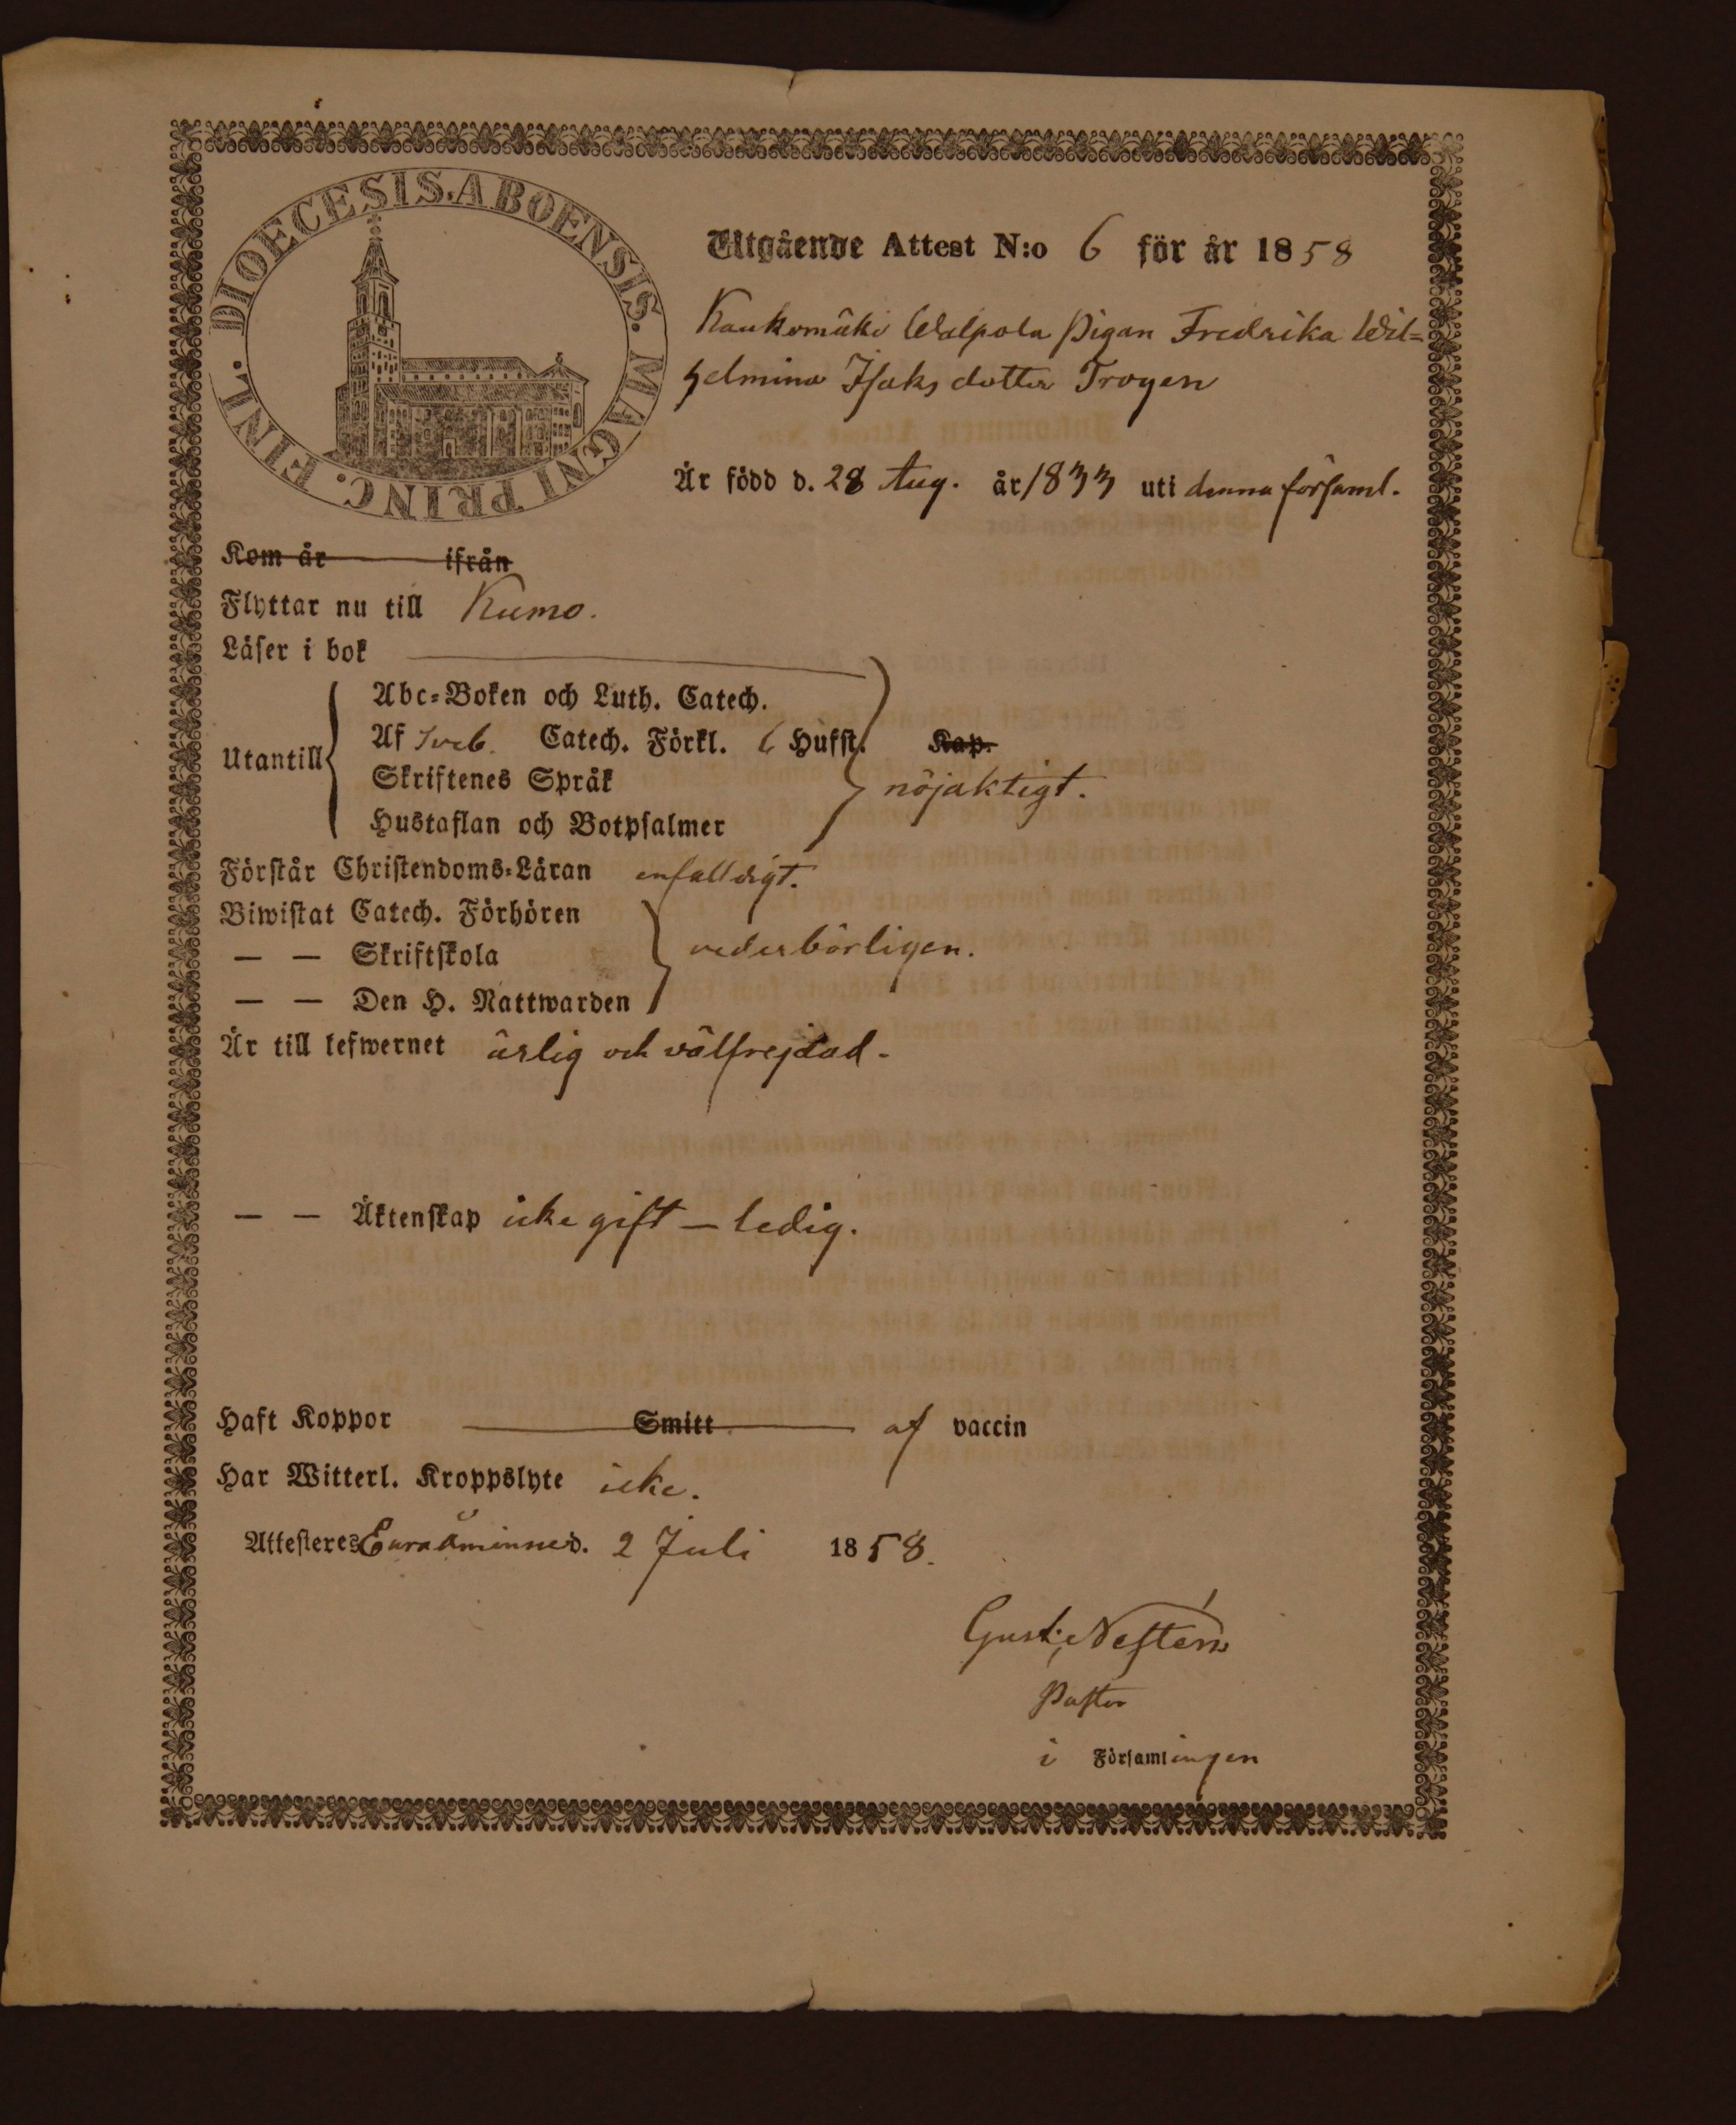 DIOECESIS. ABOENSIS. MAGNI PRINC. FINL.
Utgående Attest N:o 6 för år 1858
Kaukomäki Walpola Pigan Fredrika Wil=
helmina Isaksdotter Trogen
Är född d. 28 Aug. år 1833 uti denna församl.
Kom år ifrån
Flyttar nu till Kumo.
Läser i bok
Utantill
Abc=Boken och Luth. Catech.
Af Sveb. Catech. Förkl. 6 Hufst. Kap.
Skriftenes Språk nöjaktigt.
Hustaflan och Botpsalmer
Förstår Christendoms=Läran enfalldigt.
Biwistat Catech. Förhören
— — Skriftskola vederbörligen.
— — Den H. Nattwarden
Är till lefwernet ärlig och välfrejdad.
— — Äktenskap icke gift — ledig.
Haft Koppor Smitt af vaccin
Har Witterl. Kroppslyte icke.
Attesteres Euraåminne d. 2 Juli 1858.
Gust: Neftén
Pastor
i Församlingen